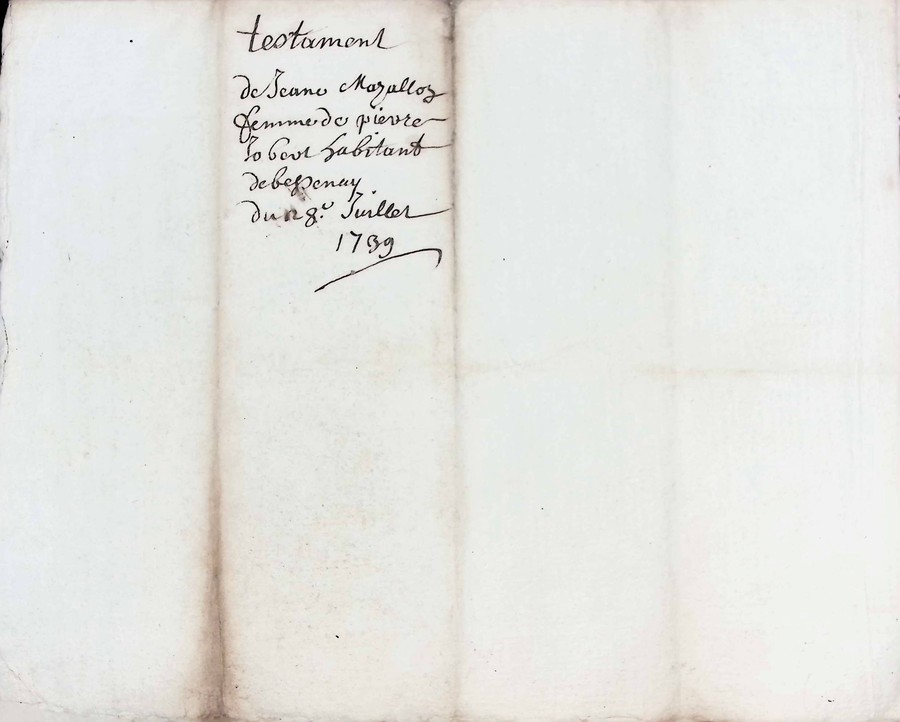 testament
de Jeane Mazalloz
femme de pierre
Jobert habitant
de bessenay
du 28e Juillet
1739